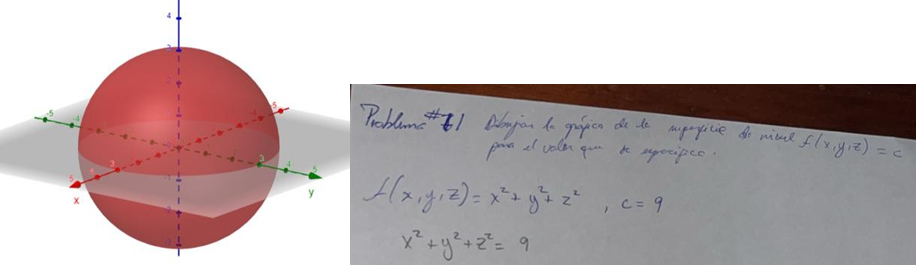 4
3
-5
-4
-5
3
3
4
5
x
y
-1
-2
-3
Problema # Dibujar la gráfica de la superficie de nivel f(x,y,z) = c
para el valor que se especifica.
f(x,y,z) = x² + y² + z² , c = 9
x² + y² + z² = 9